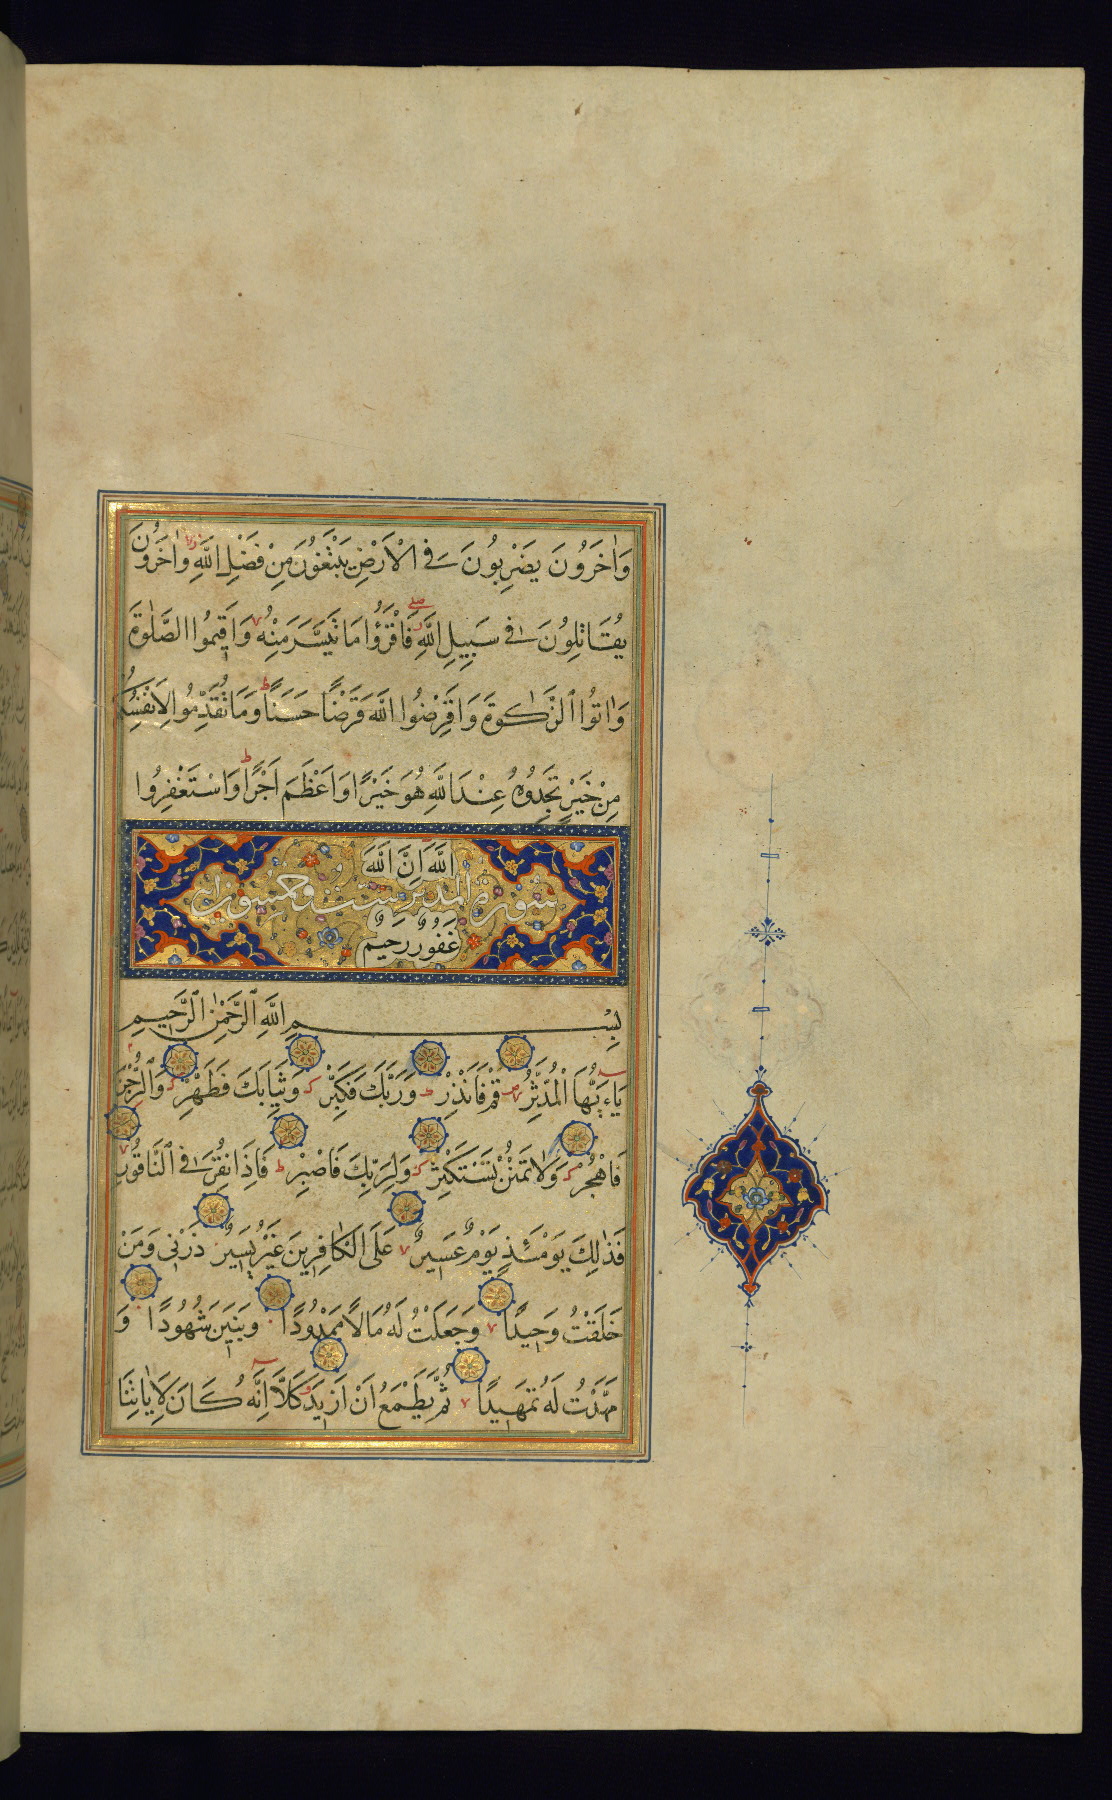 وَاٰخَرُونَ يَضْرِبُونَ فِى الْاَرْضِ يَبْتَغُونَ مِنْ فَضْلِ اللّٰهِ وَاٰخَرُونَ
يُقَاتِلُونَ فِى سَبِيلِ اللّٰهِ فَاقْرَؤُا مَا تَيَسَّرَ مِنْهُ وَاَقِيمُوا الصَّلٰوةَ
وَاٰتُوا الزَّكٰوةَ وَاَقْرِضُوا اللّٰهَ قَرْضًا حَسَنًا وَمَا تُقَدِّمُوا لِاَنْفُسِكُمْ
مِنْ خَيْرٍ تَجِدُوهُ عِنْدَ اللّٰهِ هُوَ خَيْرًا وَاَعْظَمَ اَجْرًا وَاسْتَغْفِرُوا
اللّٰهَ اِنَّ اللّٰهَ
سورة المدثر ست وخمسون اية
غَفُورٌ رَحِيمٌ
بِسْمِ اللّٰهِ الرَّحْمٰنِ الرَّحِيمِ
يَاءَيُّهَا الْمُدَّثِّرُ قُمْ فَاَنْذِرْ وَرَبَّكَ فَكَبِّرْ وَثِيَابَكَ فَطَهِّرْ وَالرُّجْزَ
فَاهْجُرْ وَلَا تَمْنُنْ تَسْتَكْثِرُ وَلِرَبِّكَ فَاصْبِرْ فَاِذَا نُقِرَ فِى النَّاقُورِ
فَذٰلِكَ يَوْمَئِذٍ يَوْمٌ عَسِيرٌ عَلَى الْكَافِرِينَ غَيْرُ يَسِيرٍ ذَرْنِى وَمَنْ
خَلَقْتُ وَحِيدًا وَجَعَلْتُ لَهُ مَالًا مَمْدُودًا وَبَنِينَ شُهُودًا وَ
مَهَّدْتُ لَهُ تَمْهِيدًا ثُمَّ يَطْمَعُ اَنْ اَزِيدَ كَلَّا اِنَّهُ كَانَ لِاٰيَاتِنَا